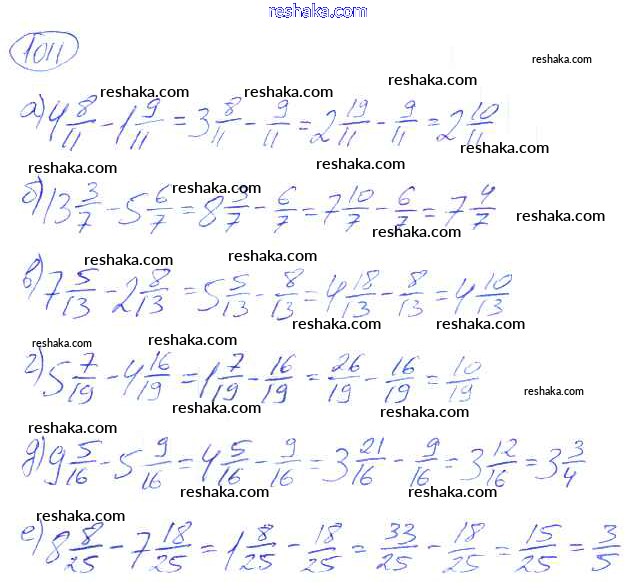 reshaka.com
1011
reshaka.com
reshaka.com
reshaka.com reshaka.com
а) 4 8/11 - 1 9/11 = 3 8/11 - 9/11 = 2 19/11 - 9/11 = 2 10/11
reshaka.com reshaka.com
reshaka.com
б) 13 3/7 - 5 6/7 = 8 3/7 - 6/7 = 7 10/7 - 6/7 = 7 4/7
reshaka.com
reshaka.com
reshaka.com reshaka.com
в) 7 5/13 - 2 8/13 = 5 5/13 - 8/13 = 4 18/13 - 8/13 = 4 10/13
reshaka.com reshaka.com
reshaka.com reshaka.com reshaka.com
г) 5 7/19 - 4 16/19 = 1 7/19 - 16/19 = 26/19 - 16/19 = 10/19
reshaka.com
reshaka.com reshaka.com
reshaka.com
д) 9 5/16 - 5 9/16 = 4 5/16 - 9/16 = 3 21/16 - 9/16 = 3 12/16 = 3 3/4
reshaka.com reshaka.com
reshaka.com reshaka.com
е) 8 8/25 - 7 18/25 = 1 8/25 - 18/25 = 33/25 - 18/25 = 15/25 = 3/5
reshaka.com reshaka.com